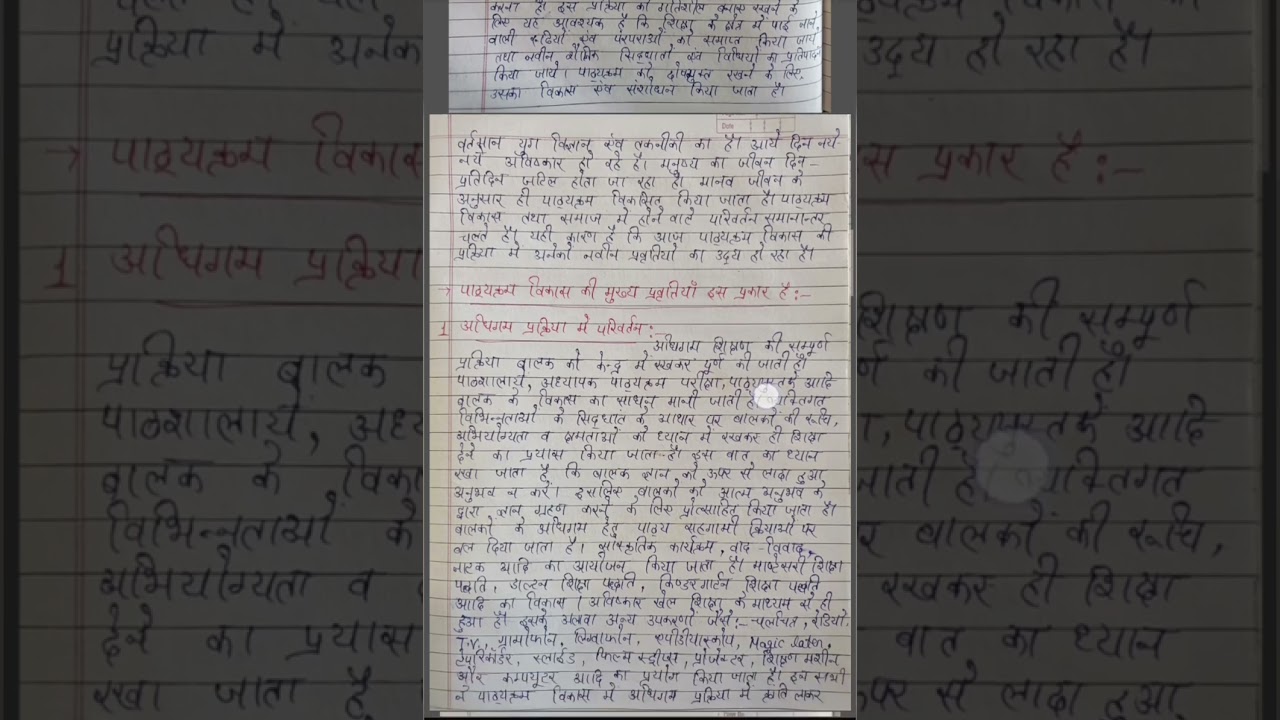 करना है। इस प्रक्रिया को गतिशील बनाए रखने के
लिए यह आवश्यक है कि शिक्षा के क्षेत्र में पाई जाने
वाली रूढियो एंव परंपराओं को समाप्त किया जाये
तथा नवीन शैक्षिक सिद्धान्तों एंव विधियों का प्रतिपादन
किया जाये। पाठ्यक्रम को दोषमुक्त रखने के लिए
उसका विकास एंव संशोधन किया जाता है।
Date
वर्तमान युग विज्ञान एंव तकनीकी का है। आये दिन नये
नये अविष्कार हो रहे है। मनुष्य का जीवन दिन-
प्रतिदिन जटिल होता जा रहा है। मानव जीवन के
अनुसार ही पाठ्यक्रम विकसित किया जाता है। पाठ्यक्रम
विकास तथा समाज मे होने वाले परिवर्तन समानान्तर
चलते है। यही कारण है कि आज पाठ्यक्रम विकास की
प्रक्रिया मे अनेको नवीन प्रवृतियो का उद्य हो रहा है।
→ पाठ्यक्रम विकास की मुख्य प्रवृतियाँ इस प्रकार है:-
1 अधिगम प्रक्रिया मे परिवर्तन:-
अधिगम शिक्षण की सम्पूर्ण
प्रक्रिया बालक को केन्द्र मे रखकर पूर्ण की जाती है।
पाठशालायें, अध्यापक पाठ्यक्रम परीक्षा, आदि
बालक के विकास का साधन मानी जाती है।
विभिन्नताओं के सिद्धांत के आधार पर बालकों की रूचि,
अभियोग्यता व क्षमताओं को ध्यान मे रखकर ही शिक्षा
देने का प्रयास किया जाता है। इस बात का ध्यान
रखा जाता है कि बालक ज्ञान को ऊपर से लादा हुआ
अनुभव न करें। इसलिए बालकों को आत्म अनुभव के
द्वारा ज्ञान ग्रहण करने के लिए प्रोत्साहित किया जाता है।
बालकों के अधिगम हेतु पाठ्य सहगामी क्रियाओं पर
बल दिया जाता है। सांस्कृतिक कार्यक्रम, वाद-विवाद,
नाटक आदि का आयोजन किया जाता है। माण्टेसरी शिक्षा
पद्धति, डाल्टन शिक्षा पद्धति, किण्डरगार्टन शिक्षा पद्धति
आदि का विकास / अविष्कार खेल शिक्षा के माध्यम से ही
हुआ है। इसके अलवा अन्य उपकरणों जैसे:- चलचित्र, रेडियो,
T.V., ग्रामोफोन, लिंग्वाफोन, एपीडीयास्कोप, Magic
टेपरिकॉर्डर, स्लाईड, फिल्म स्ट्रीप्स, प्रोजेक्टर, शिक्षण मशीन
और कम्प्यूटर आदि का प्रयोग किया जाता है। इन सभी
ने पाठ्यक्रम विकास मे अधिगम प्रक्रिया मे क्रांति लाकर